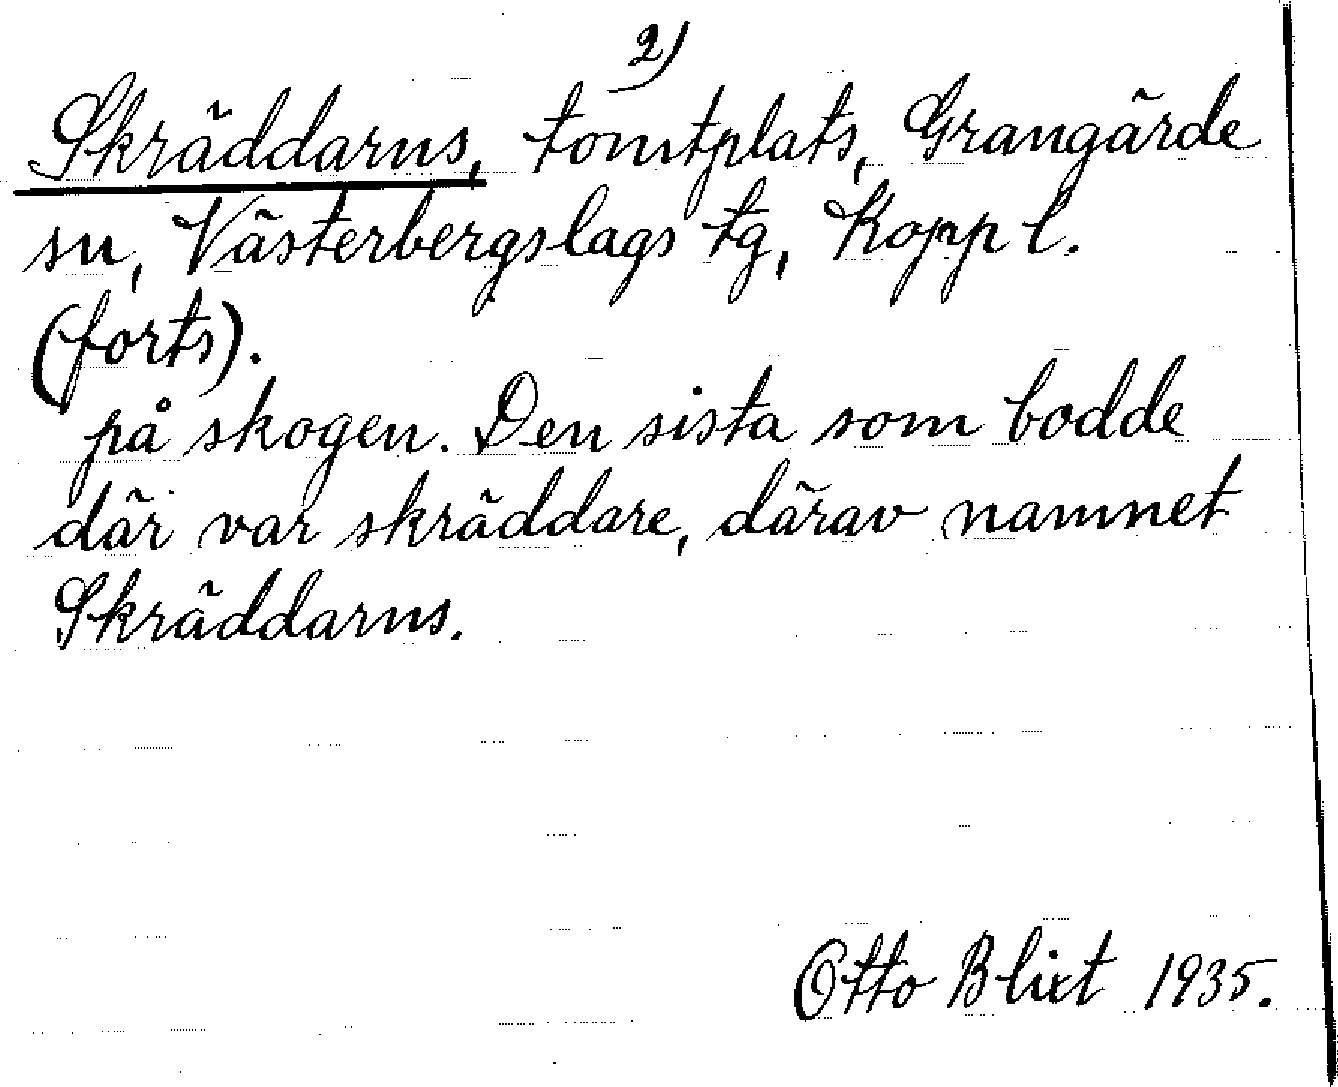 2)
Skräddarns, tomtplats, Grangärde
sn, Västerbergslags tg, Kopp l.
(forts).
på skogen. Den sista som bodde
där var skräddare, därav namnet
Skräddarns.
Otto Blixt 1935.